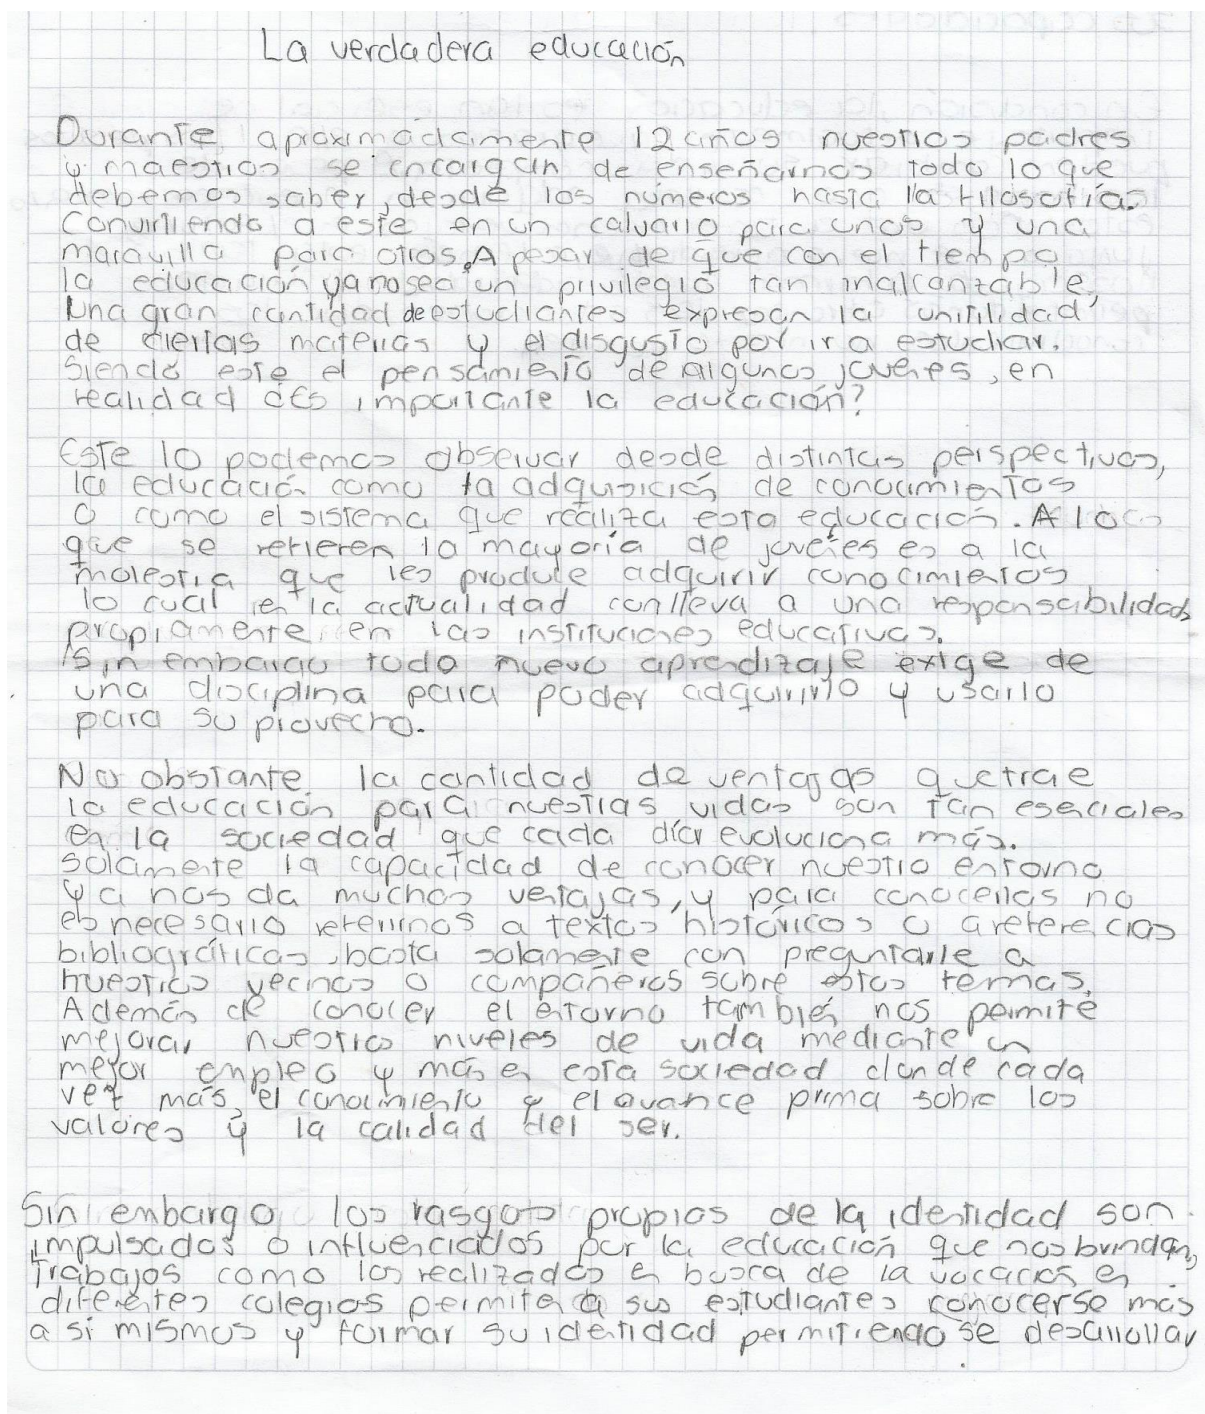 La verdadera educación
Durante aproximadamente 12 años nuestros padres
y maestros se encargan de enseñarnos todo lo que
debemos saber, desde los números hasta la filosofía.
Convirtiendo a este en un calvario para unos y una
maravilla para otros. A pesar de que con el tiempo
la educación ya no sea un privilegio tan inalcanzable,
una gran cantidad de estudiantes expresan la unitilidad
de ciertas materias y el disgusto por ir a estudiar.
Siendo este el pensamiento de algunos jovenes, en
realidad ¿Es importante la educación?
Este lo podemos observar desde distintas perspectivas,
la educación como la adquisición de conocimientos
o como el sistema que realiza esta educación. A lo
que se refieren la mayoría de jovenes es a la
molestia que les produce adquirir conocimientos
lo cual en la actualidad conlleva a una responsabilidad,
propiamente en las instituciones educativas.
Sin embargo todo nuevo aprendizaje exige de
una disciplina para poder adquirirlo y usarlo
para su provecho.
No obstante, la cantidad de ventajas que trae
la educación para nuestras vidas son tan esenciales
en la sociedad que cada día evoluciona más.
solamente la capacidad de conocer nuestro entorno
ya nos da muchas ventajas, y para conocerlas no
es necesario referirnos a textos históricos o a referencias
bibliográficas, basta solamente con preguntarle a
nuestros vecinos o compañeros sobre estos temas.
Además de conocer el entorno también nos permite
mejorar nuestros niveles de vida mediante un
mejor empleo y más en esta sociedad donde cada
vez más, el conocimiento y el avance prima sobre los
valores y la calidad del ser.
Sin embargo, los rasgos propios de la identidad son
impulsados o influenciados por la educación que nos brindan,
Trabajos como los realizados en busca de la vocación en
diferentes colegios permiten a sus estudiantes conocerse más
a sí mismos y formar su identidad permitiendose desarrollar